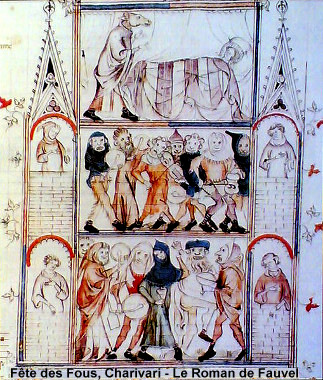 Fête des Fous, Charivari - Le Roman de Fauvel